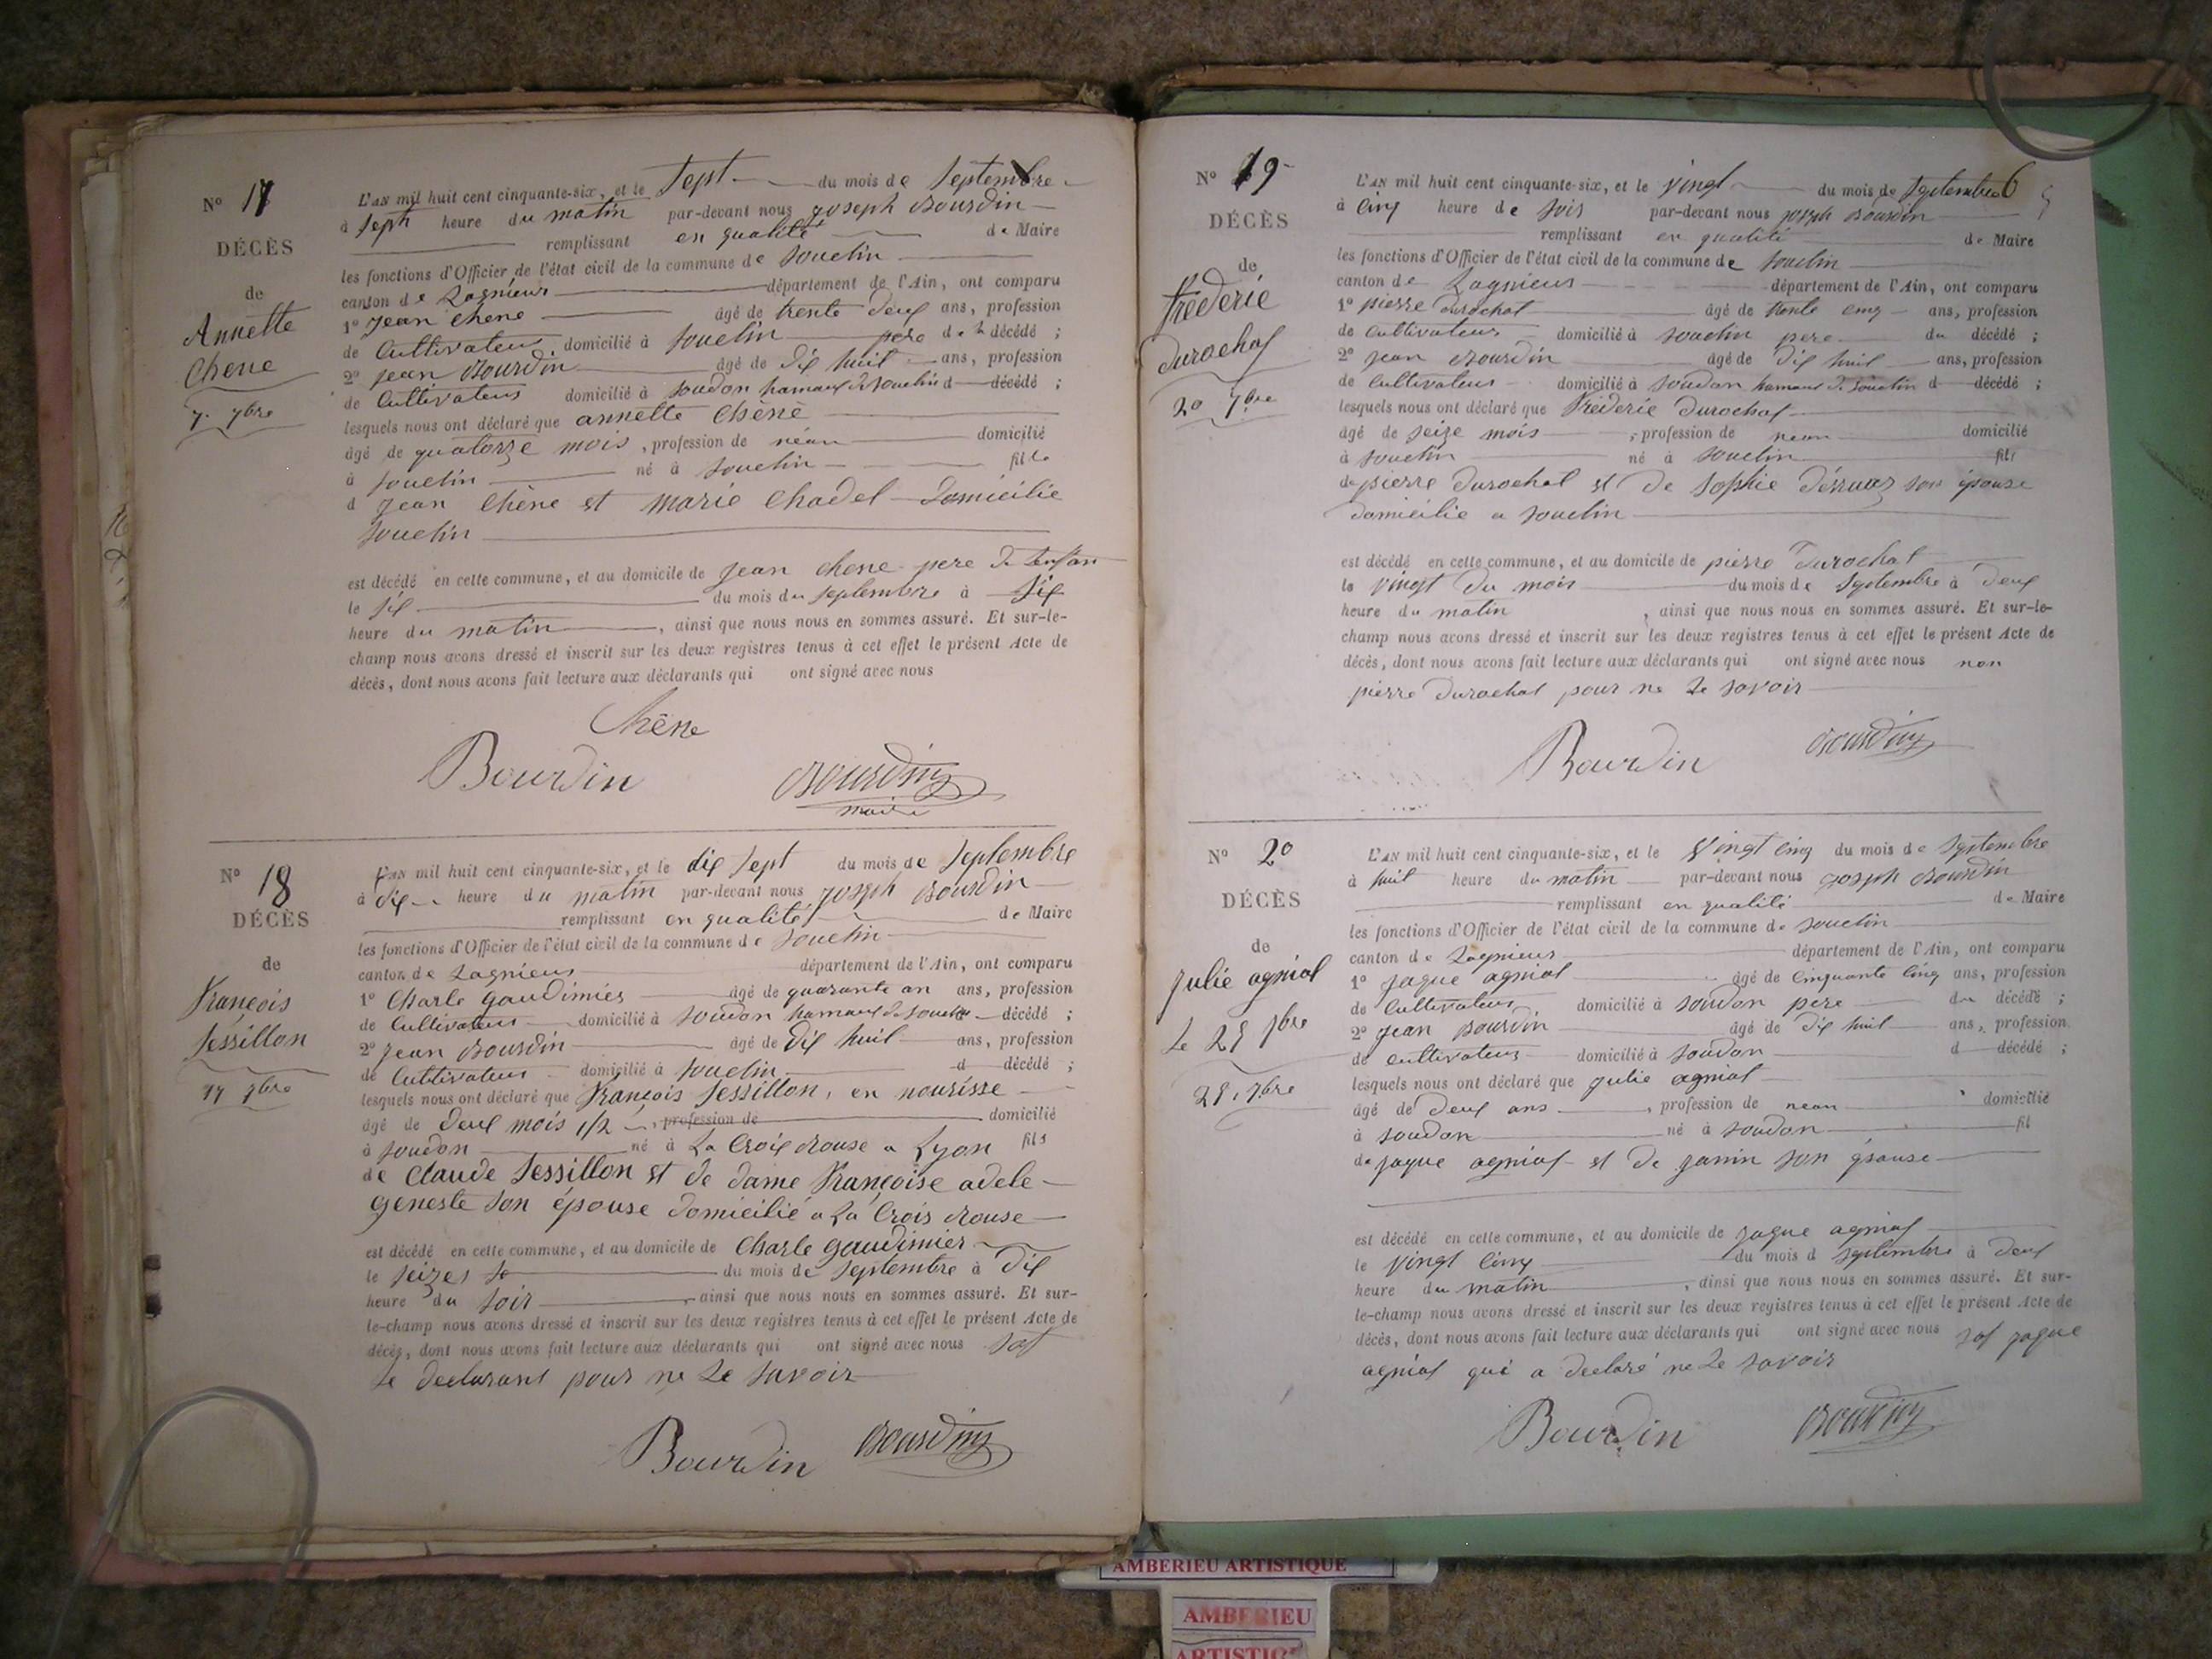 N° 17
DÉCÈS
de
Annette
Chene
7. 7bre
L'AN mil huit cent cinquante-six, et le Sept du mois de Septembre
à Sept heure du matin par-devant nous Joseph Bourdin
remplissant en qualité de Maire
les fonctions d'Officier de l'état civil de la commune de Souclin
canton de Lagnieux département de l'Ain, ont comparu
1° Jean Chene âgé de trente deux ans, profession
de Cultivateur domicilié à Souclin pere de la décédé ;
2° Jean Bourdin âgé de dix huit ans, profession
de Cultivateur domicilié à Soudon hamaux de Souclin d décédé ;
lesquels nous ont déclaré que annette Chêne
âgé de quatorze mois, profession de néan domicilié
à Souclin né à Souclin fille
d Jean Chêne et marie Chadel Domicilie
Souclin
est décédé en cette commune, et au domicile de Jean Chene pere de lenfan
le Six du mois du Septembre à Six
heure du matin, ainsi que nous nous en sommes assuré. Et sur-le-
champ nous avons dressé et inscrit sur les deux registres tenus à cet effet le présent Acte de
décès, dont nous avons fait lecture aux déclarants qui ont signé avec nous
Chêne
Bourdin Bourdin
maire
N° 18
DÉCÈS
de
François
Sessillon
17 7bre
L'AN mil huit cent cinquante-six, et le dix Sept du mois de Septembre
à dix heure du matin par-devant nous Joseph Bourdin
remplissant en qualité de Maire
les fonctions d'Officier de l'état civil de la commune de Souclin
canton de Lagnieux département de l'Ain, ont comparu
1° Charle Gaudimier âgé de quarante an ans, profession
de Cultivateur domicilié à Soudon hamaux de Souclin décédé ;
2° Jean Bourdin âgé de dix huit ans, profession
de Cultivateur domicilié à Souclin d décédé ;
lesquels nous ont déclaré que François Sessillon, en nourisse
âgé de deux mois 1/2, profession de domicilié
à Soudon né à La Croix Rouse a Lyon fils
de Claude Sessillon et de dame Françoise adele
geneste son épouse domicilié a La Crois Rouse
est décédé en cette commune, et au domicile de Charle Gaudimier
le Seizes du mois de Septembre à Dix
heure du Soir, ainsi que nous nous en sommes assuré. Et sur-
le-champ nous avons dressé et inscrit sur les deux registres tenus à cet effet le présent Acte de
décès, dont nous avons fait lecture aux déclarants qui ont signé avec nous
le declarant pour ne le savoir
Bourdin Bourdin
N° 19
DÉCÈS
de
Frédérie
Durochat
20 7bre
L'AN mil huit cent cinquante-six, et le vingt du mois de Septembre 6
à cinq heure de Soir par-devant nous Joseph Bourdin
remplissant en qualité de Maire
les fonctions d'Officier de l'état civil de la commune de Souclin
canton de Lagnieux département de l'Ain, ont comparu
1° pierre Durochat âgé de trente cinq ans, profession
de Cultivateur domicilié à Souclin pere du décédé ;
2° Jean Bourdin âgé de dix huit ans, profession
de Cultivateur domicilié à Soudon hamaux de Souclin d décédé ;
lesquels nous ont déclaré que Frédérie Durochat
âgé de Seize mois, profession de nean domicilié
à Souclin né à Souclin fils
de pierre Durochat et de Sophie son épouse
domicilie a Souclin
est décédé en cette commune, et au domicile de pierre Durochat
le vingt du mois du mois de Septembre à deux
heure du matin, ainsi que nous nous en sommes assuré. Et sur-le-
champ nous avons dressé et inscrit sur les deux registres tenus à cet effet le présent Acte de
décès, dont nous avons fait lecture aux déclarants qui ont signé avec nous non
pierre Durochat pour ne le savoir
Bourdin Bourdin
N° 20
DÉCÈS
de
Julie agniat
Le 25 7bre
25. 7bre
L'AN mil huit cent cinquante-six, et le Vingt cinq du mois de Septembre
à huit heure du matin par-devant nous Joseph Bourdin
remplissant en qualité de Maire
les fonctions d'Officier de l'état civil de la commune de Souclin
canton de Lagnieux département de l'Ain, ont comparu
1° Jaque agniat âgé de Cinquante Cinq ans, profession
de Cultivateur domicilié à Soudon pere du décédé ;
2° Jean Bourdin âgé de dix huit ans, profession
de Cultivateur domicilié à Soudon d décédé ;
lesquels nous ont déclaré que Julie agniat
âgé de deux ans, profession de nean domicilié
à Soudon né à Soudon fil
de Jaque agniat et de Janin son épouse
est décédé en cette commune, et au domicile de Jaque agniat
le vingt Cinq du mois d Septembre à deux
heure du matin, ainsi que nous nous en sommes assuré. Et sur-
le-champ nous avons dressé et inscrit sur les deux registres tenus à cet effet le présent Acte de
décès, dont nous avons fait lecture aux déclarants qui ont signé avec nous Jaque
agniat qui a declaré ne le savoir
Bourdin Bourdin
AMBERIEU ARTISTIQUE
AMBERIEU
ARTISTIQ